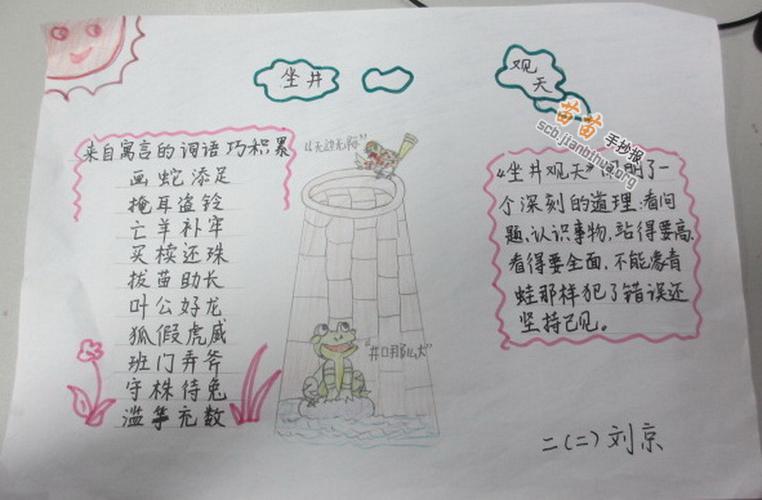 坐井
观
天
苗苗
手抄报
scb.jianbihua.org
来自寓言的词语巧积累
画蛇添足
掩耳盗铃
亡羊补牢
买椟还珠
拔苗助长
叶公好龙
狐假虎威
班门弄斧
守株待兔
滥竽充数
“无边无际”
“井口那么大”
“坐井观天”明了一
个深刻的道理:看问
题、认识事物,站得要高,
看得要全面,不能像青
蛙那样犯了错误还
坚持己见。
二(二)刘京